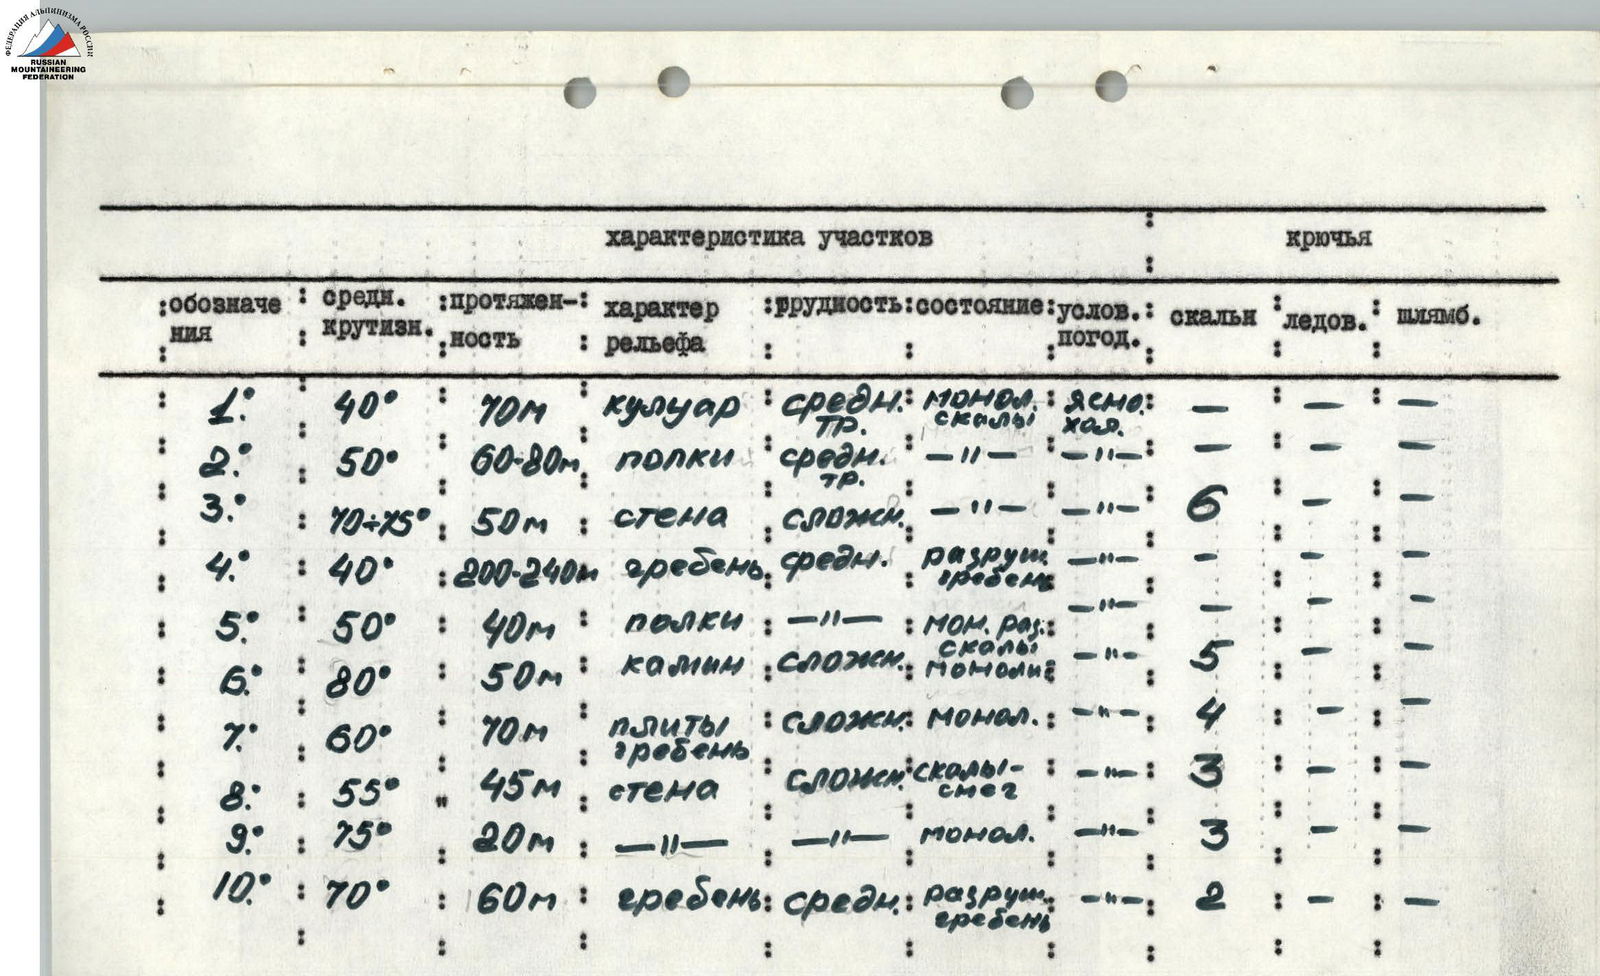 ФЕДЕРАЦИЯ АЛЬПИНИЗМА РОССИИ
RUSSIAN
MOUNTAINEERING
FEDERATION
характеристика участков : крючья
:обозначе : средн. :протяжен-: характер :трудность:состояние:услов.: скальн : ледов. : шлямб.
ния крутизн. ность рельефа погод.
1. 40° 70м кулуар средн. монол. ясно. — — —
тр. скалы хол.
2. 50° 60-80м полки средн. —"— —"— — — —
тр.
3. 70÷75° 50м стена сложн. —"— —"— 6 — —
4. 40° 200-240м гребень средн. разруш. —"— — — —
гребень
5. 50° 40м полки —"— мон. раз. —"— — — —
скалы
6. 80° 50м камин сложн. монолит —"— 5 — —
7. 60° 70м плиты сложн. монол. —"— 4 — —
гребень
8. 55° " 45м стена сложн. скалы- —"— 3 — —
снег
9. 75° 20м —"— —"— монол. —"— 3 — —
10. 70° 60м гребень средн. разруш. —"— 2 — —
гребень